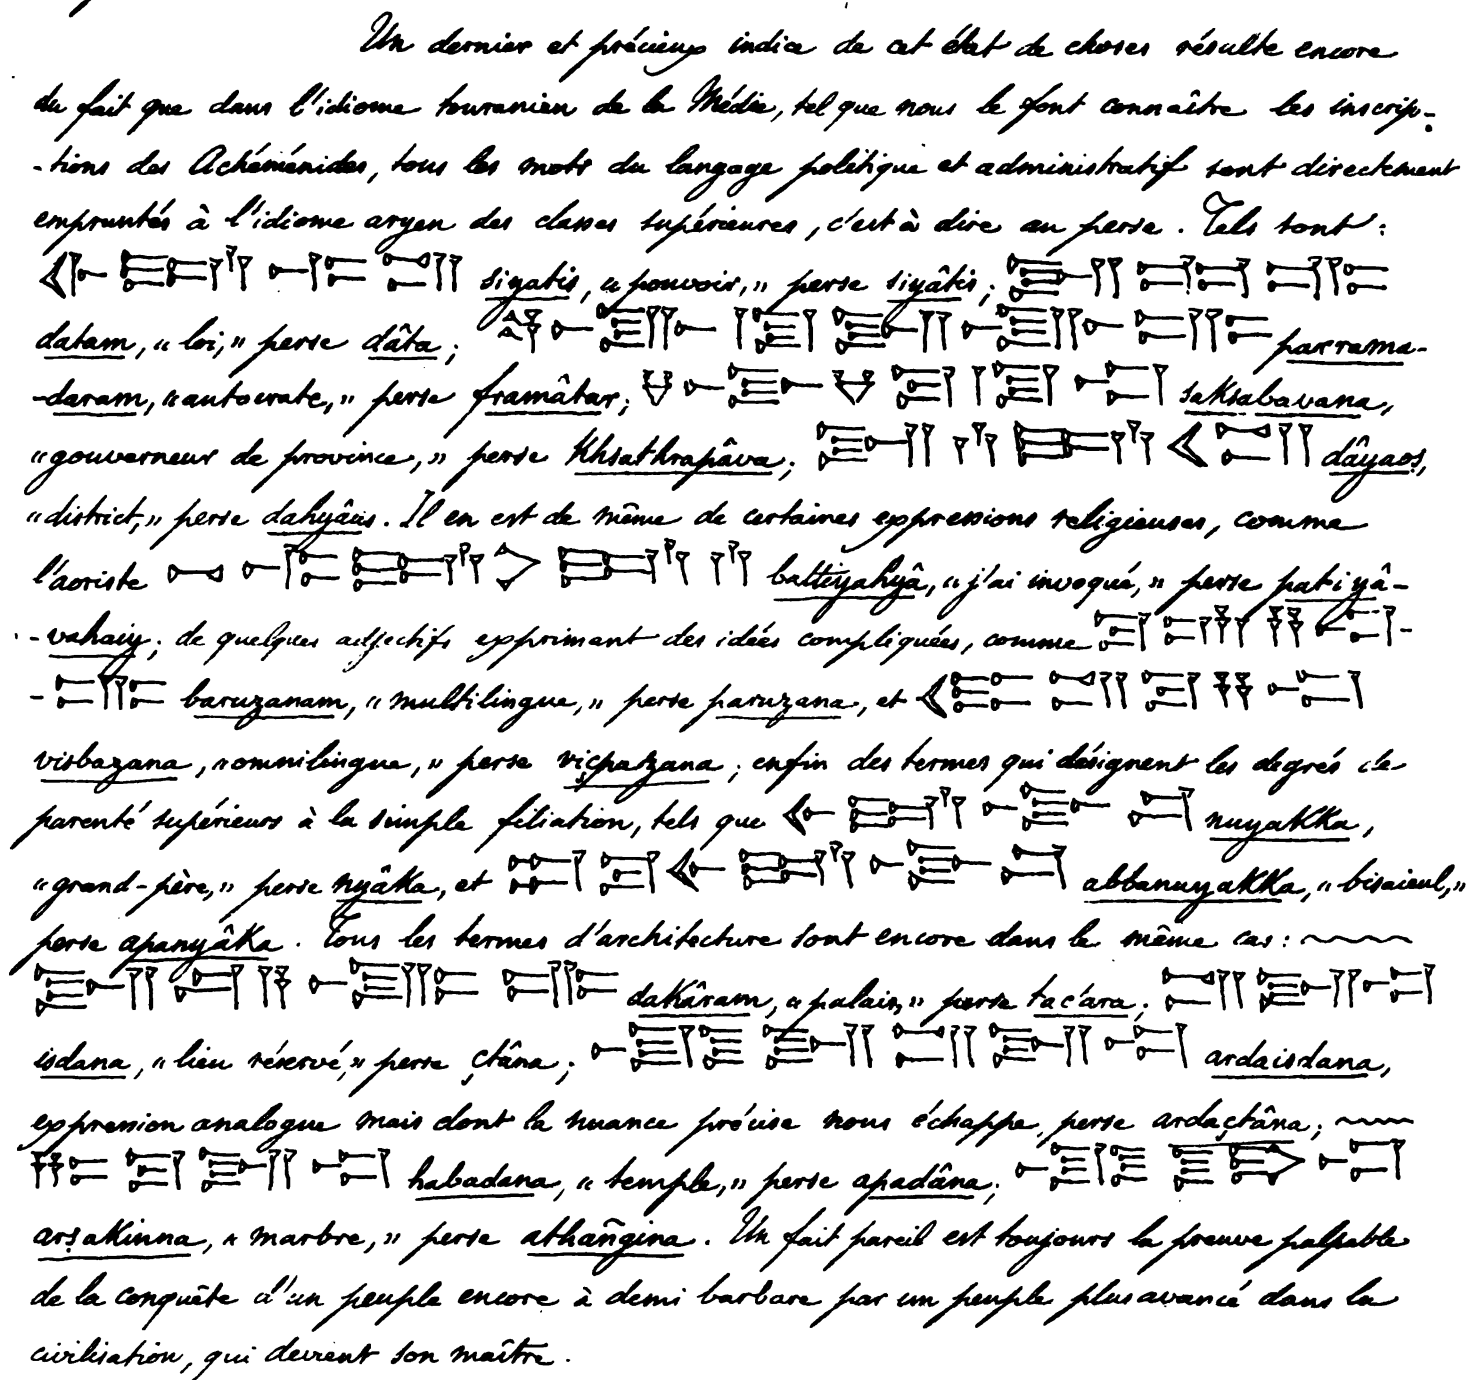 Un dernier et précieux indice de cet état de choses résulte encore
du fait que dans l'idiome touranien de la Médie, tel que nous le font connaître les inscrip-
-tions des Achéménides, tous les mots du langage politique et administratif sont directement
empruntés à l'idiome aryen des classes supérieures, c'est à dire au perse. Tels sont :
siyatis, « pouvoir, » perse siyâtis ;
datam, « loi, » perse dâta ; parrama-
-daram, « autocrate, » perse framâtar ; saksabavana,
« gouverneur de province, » perse khsathrapâva ; dâyaos,
« district, » perse dahyâus. Il en est de même de certaines expressions religieuses, comme
l'aoriste battiyahyâ, « j'ai invoqué, » perse patiyâ-
-vahaiy ; de quelques adjectifs exprimant des idées compliquées, comme
baruzanam, « multilingue, » perse paruzana, et
visbazana, « omnilingue, » perse viçpazana ; enfin des termes qui désignent les degrés de
parenté supérieurs à la simple filiation, tels que nuyakka,
« grand-père, » perse nyâka, et abbanuyakka, « bisaieul, »
perse apanyâka. Tous les termes d'architecture sont encore dans le même cas :
dakâram, « palais, » perse tac'ara ;
isdana, « lieu réservé, » perse çtâna ; ardaisdana,
expression analogue mais dont la nuance précise nous échappe, perse ardaçtâna ;
habadana, « temple, » perse apadâna ;
arṣakinna, « marbre, » perse athañgina. Un fait pareil est toujours la preuve palpable
de la conquête d'un peuple encore à demi barbare par un peuple plus avancé dans la
civilisation, qui devient son maître.